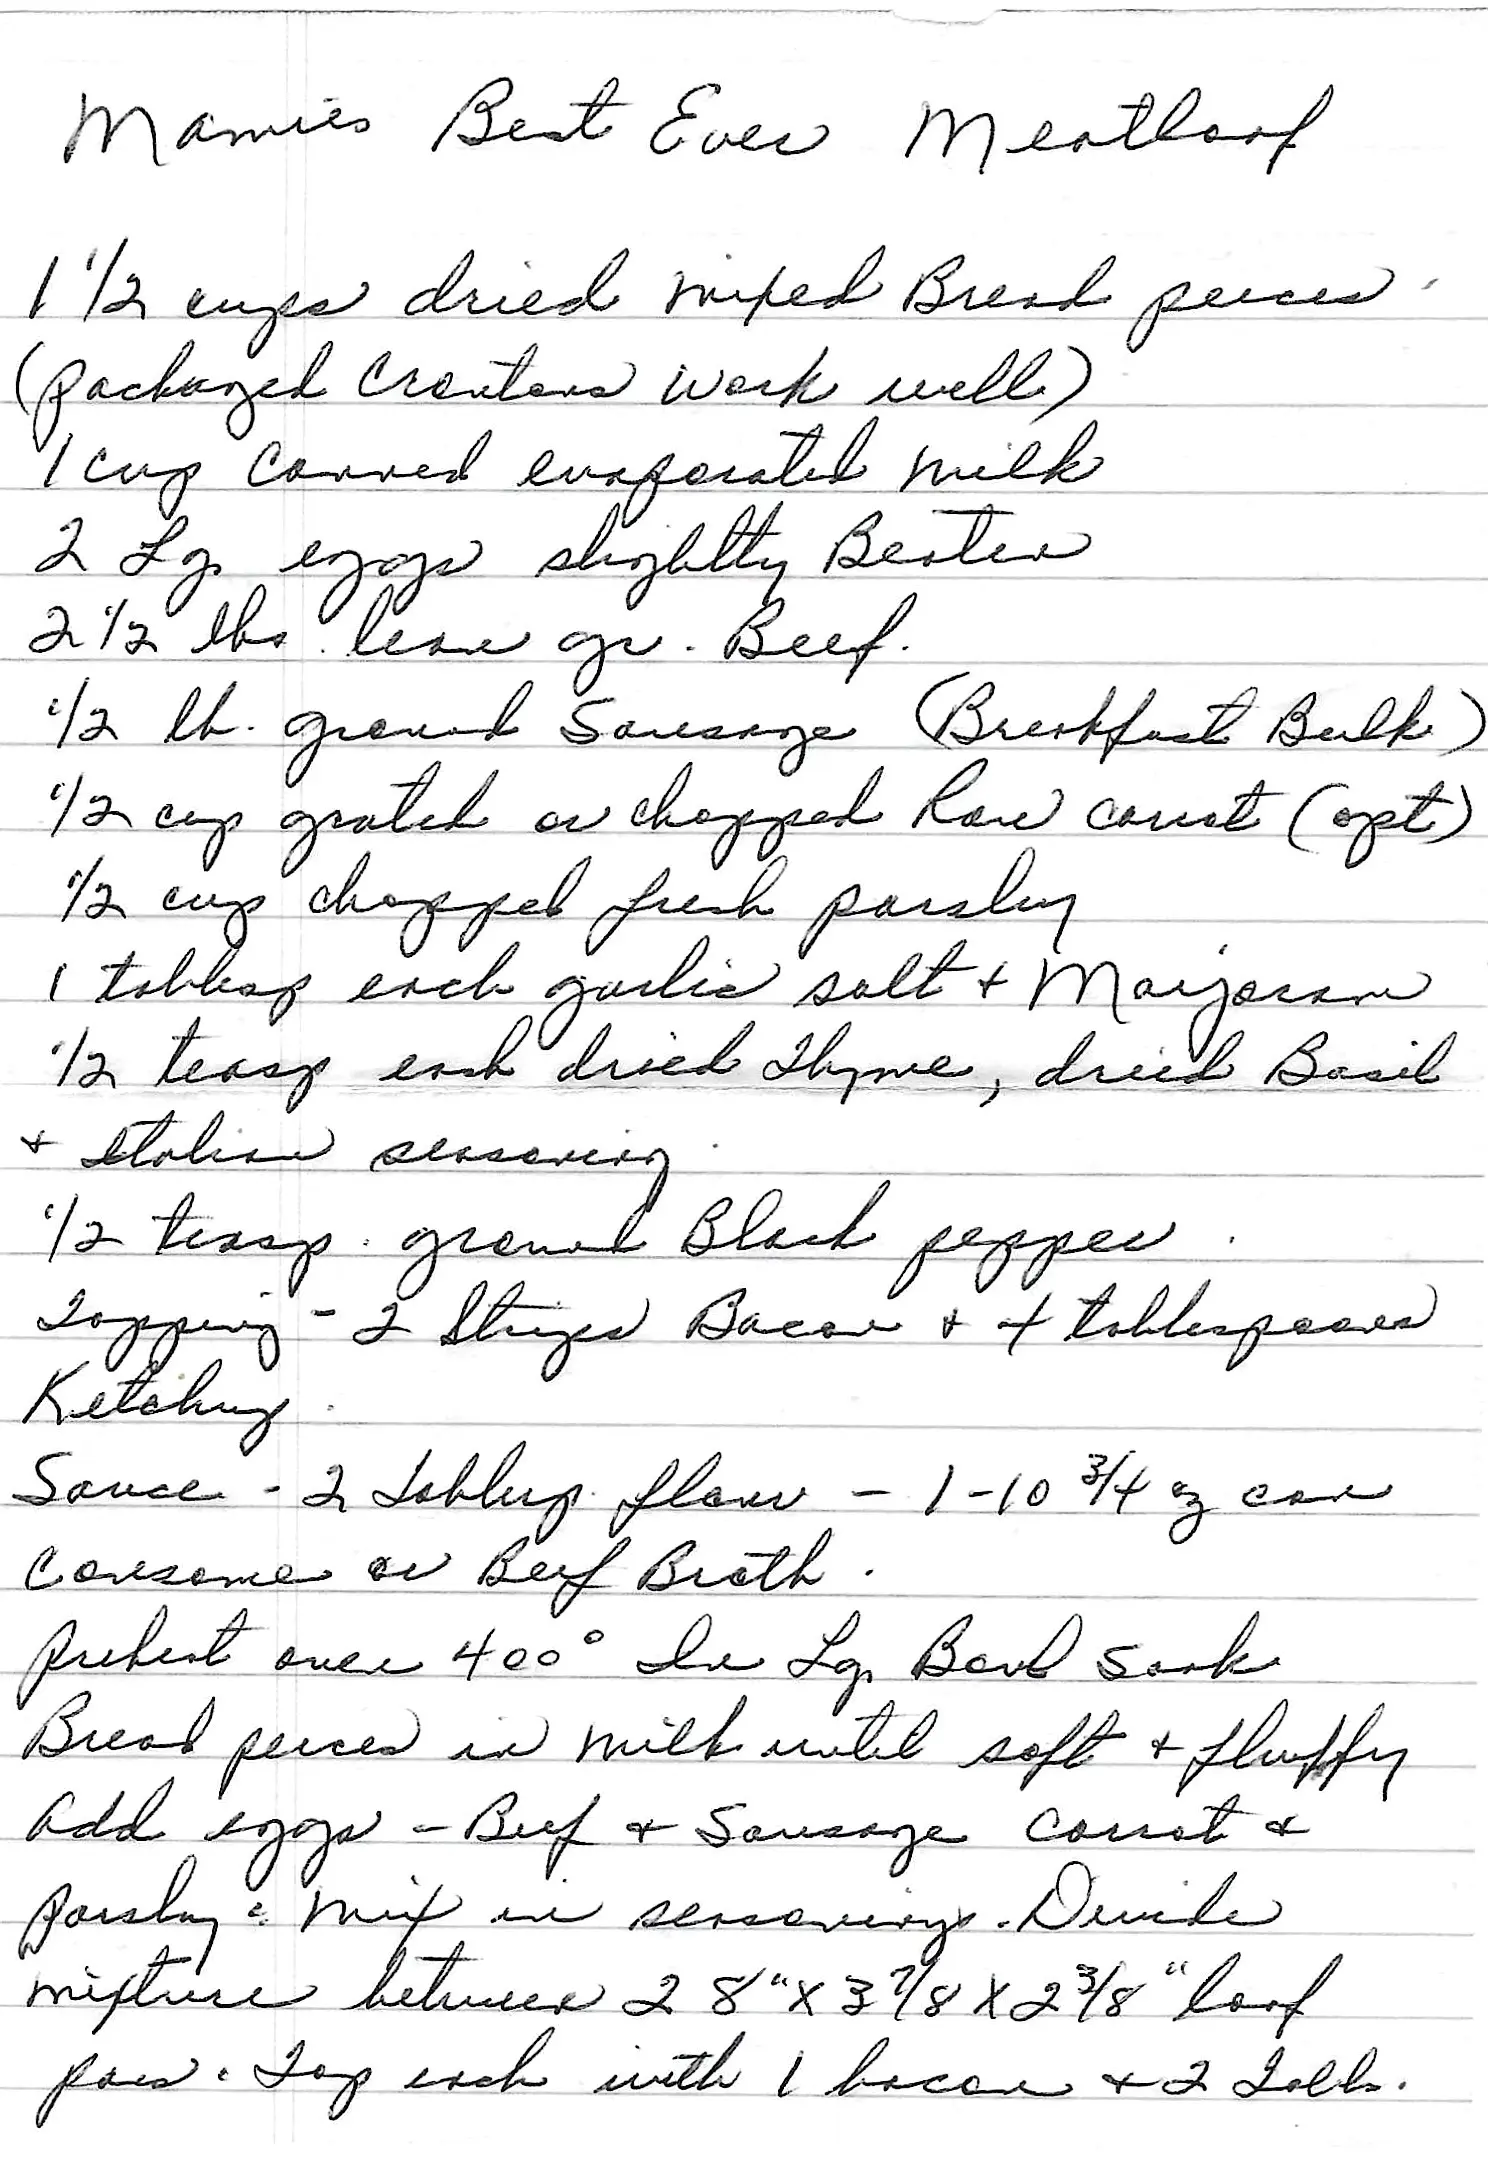 Mamies Best Ever Meatloaf
1 1/2 cups dried mixed Bread peices
(packaged Croutons work well)
1 cup Canned evaporated milk
2 Lg. eggs slightly Beaten
2 1/2 lbs. lean gr. Beef.
1/2 lb. ground Sausage (Breakfast Bulk)
1/2 cup grated or chopped Raw carrot (opt)
1/2 cup chopped fresh parsley
1 tablesp each garlic salt + Marjoram
1/2 teasp each dried Thyme, dried Basil
+ Italian seasoning
1/2 teasp. ground Black pepper
Topping - 2 Strips Bacon + 4 tablespoons
Ketchup
Sauce - 2 Tablesp. flour - 1-10 3/4 oz can
Consome or Beef Broth.
Preheat oven 400° In Lg. Bowl Soak
Bread peices in milk until soft + fluffy
add eggs - Beef + Sausage Carrot &
Parsley. Mix in seasonings. Divide
mixture between 2 8" X 3 7/8 X 2 3/8" loaf
pans. Top each with 1 bacon + 2 Tolb.